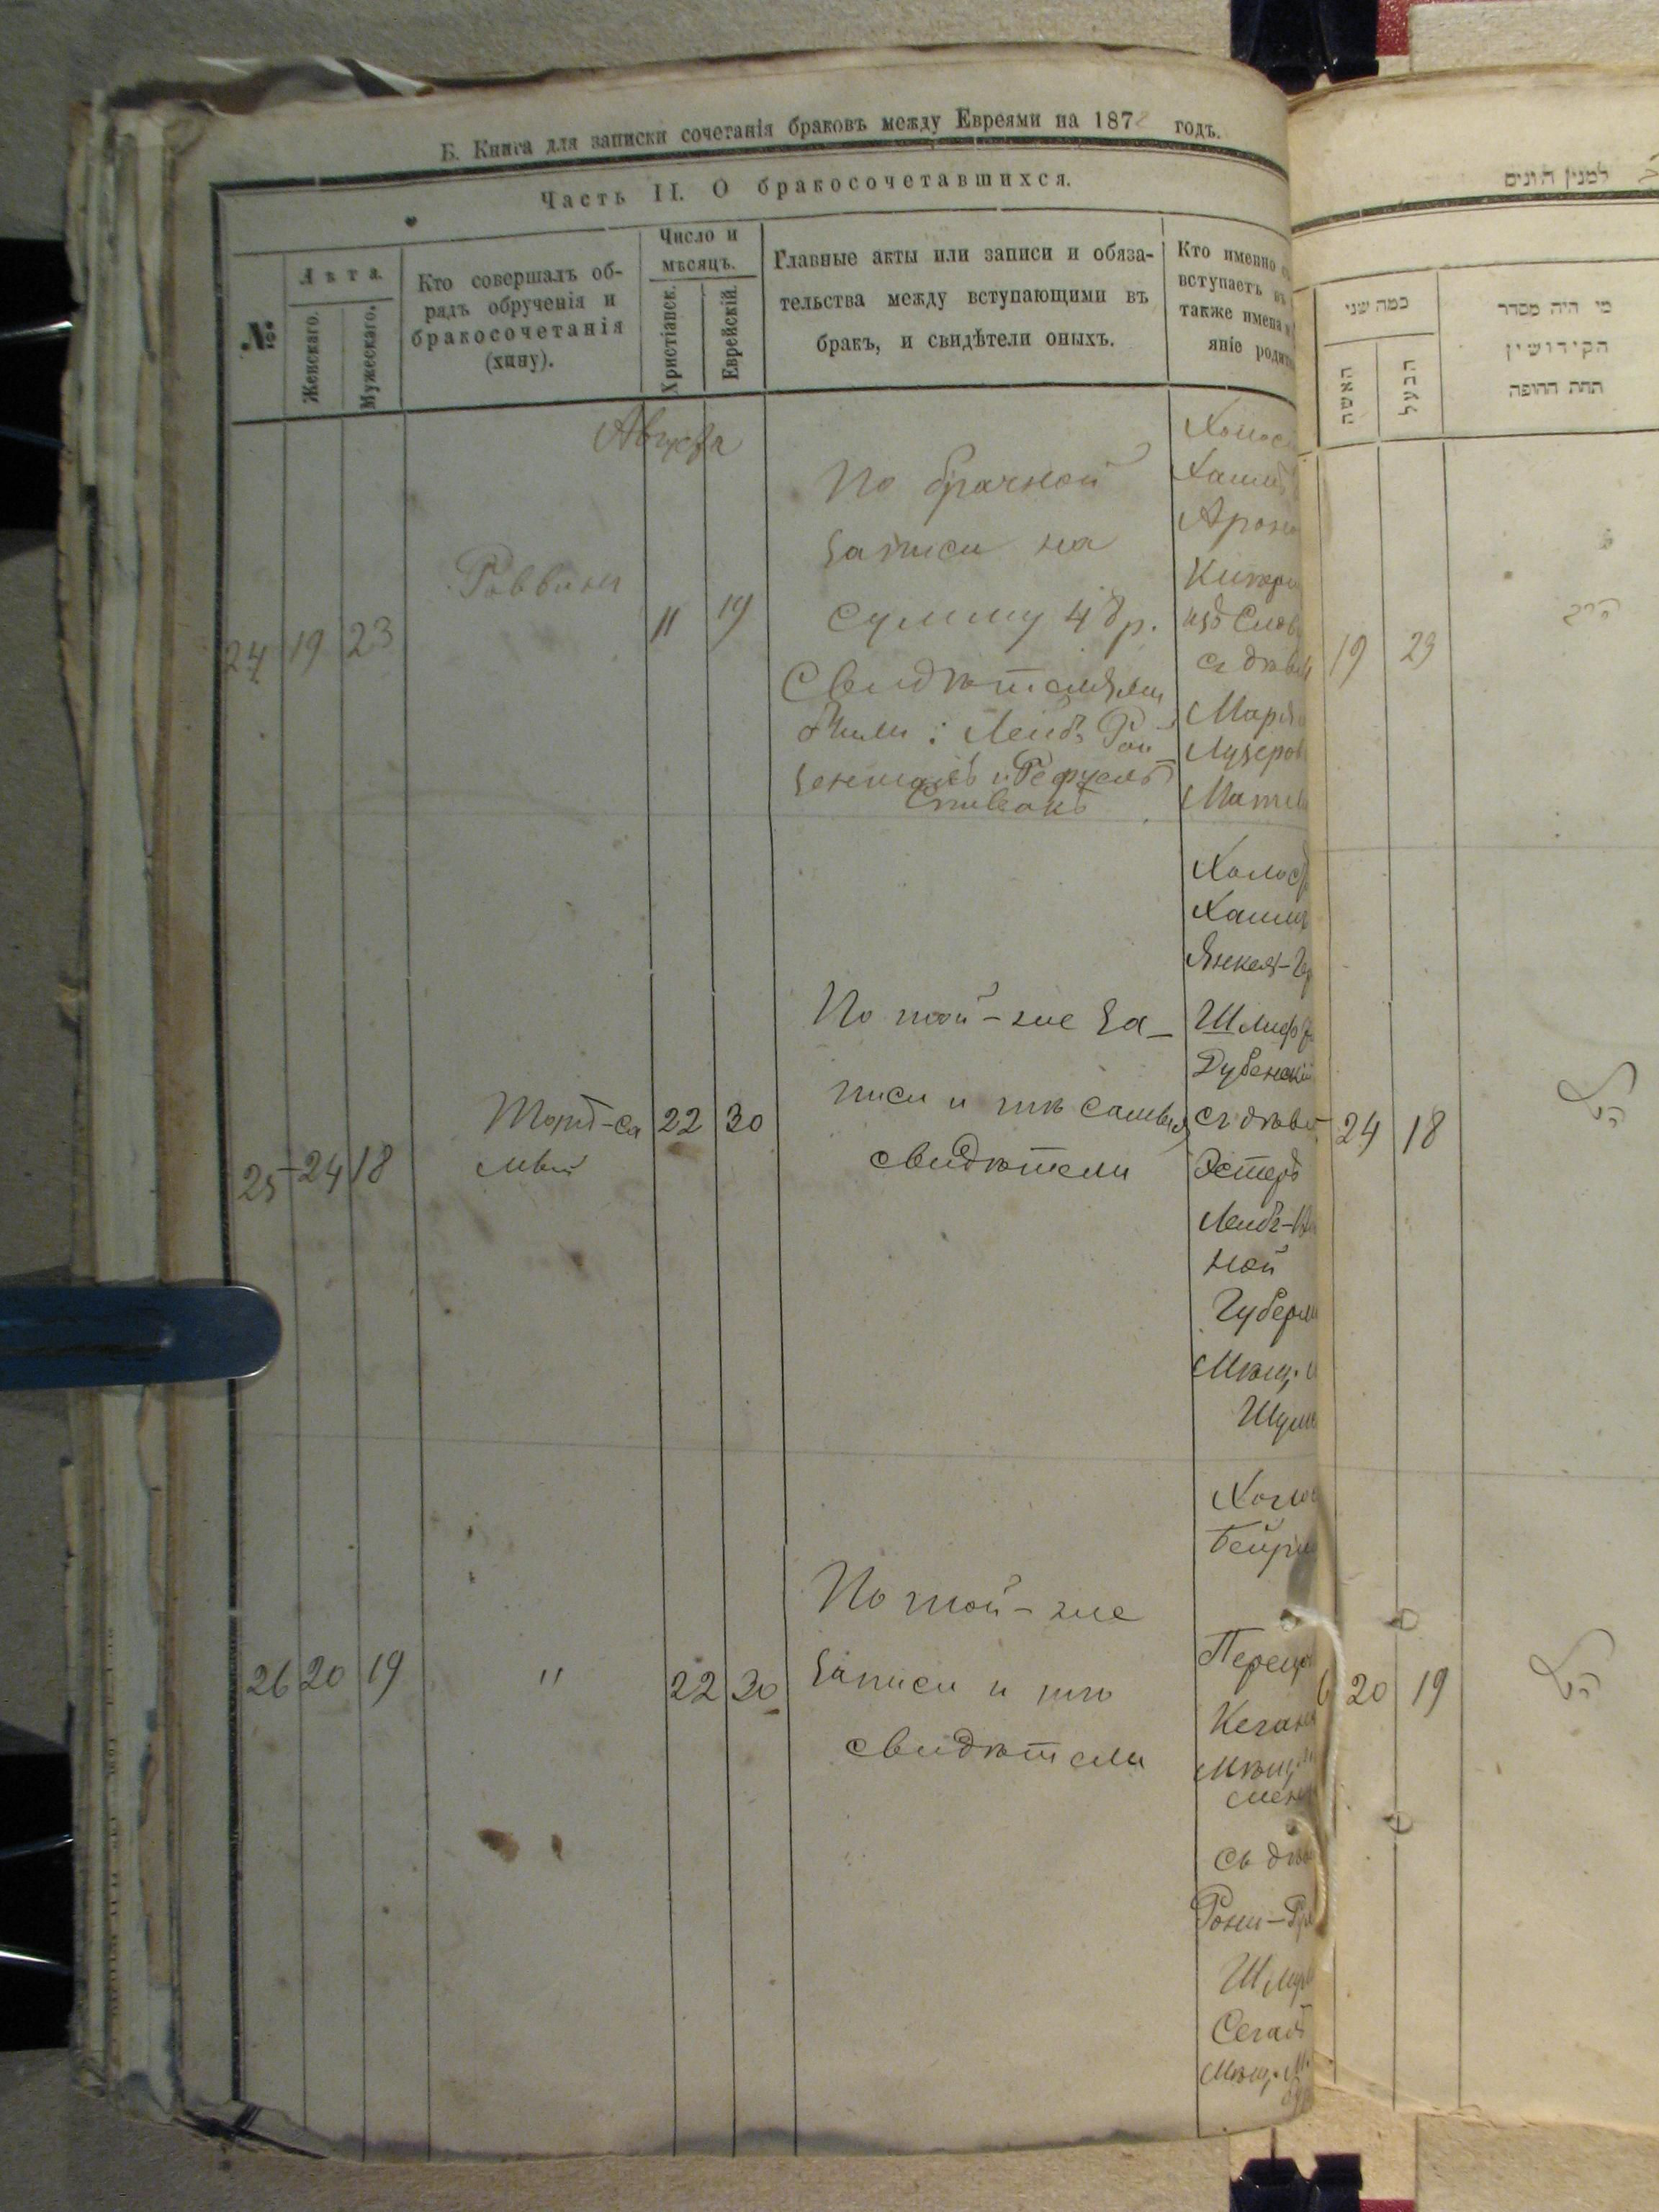 Б. Книга для записки сочетанія браковъ между Евреями на 1878 годъ.
Часть II. О бракосочетавшихся.
№
Лѣта.
Женскаго.
Мужескаго.
Кто совершалъ об-
рядъ обрученія и
бракосочетанія
(хипу).
Число и
мѣсяцъ.
Христіанск.
Еврейскій.
Главные акты или записи и обяза-
тельства между вступающими въ
бракъ, и свидѣтели оныхъ.
Кто именно
вступаетъ въ
также имена и
яніе родит
Августа
24 19 23
Раввинъ
11 19
По брачной
записи на
сумму 48 р.
Свидѣтелями
были: Лейбъ Рой
Спивакъ
Холос
Хаимъ
Арон
изъ Слов
съ дѣви
Марья
Лузеров
25 24 18
Тотъ-са
мый
22 30
По той-же за-
писи и тѣ самыя
свидѣтели
Холост
Хаим
Янкел-
Шлиф
Дубенскій
съ дѣви
Эстеръ
Лейбъ-
ной
Губерн
Мѣщ.
Шум
26 20 19
"
22 30
По той-же
записи и тѣ
свидѣтели
Холос
Бейри
Перец
Кеган
Мѣщ.
съ дѣв
Рони-
Шму
Сегал
Мѣщ.
למנין היונים
כמה שני
האשה
הבעל
מי היה מסדר
הקידושין
תחת החופה
19 23
הרב
24 18
הנ"ל
20 19
הנ"ל